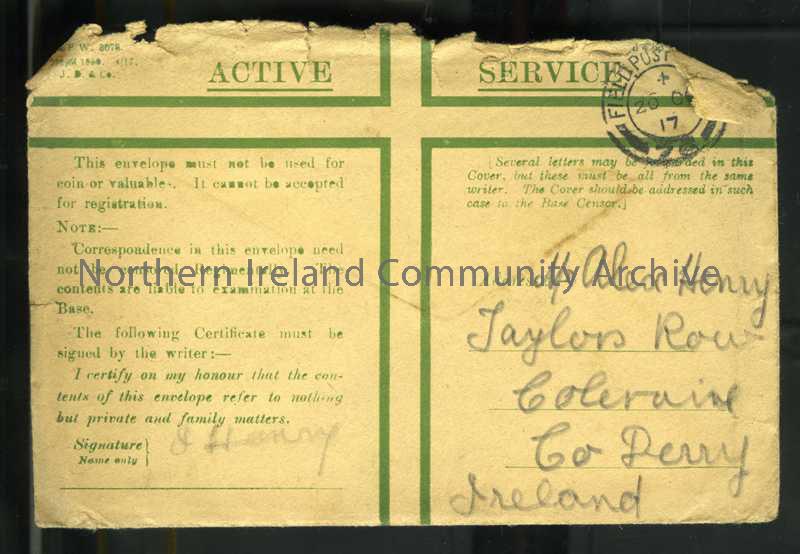 P. W. 3078.
J. D. & Co.
ACTIVE
SERVICE
FIELD POST
17
This envelope must not be used for
coin or valuables. It cannot be accepted
for registration.
NOTE:—
Correspondence in this envelope need
not be censored Regimentally. The
contents are liable to examination at the
Base.
The following Certificate must be
signed by the writer:—
I certify on my honour that the con-
tents of this envelope refer to nothing
but private and family matters.
Signature }
Name only
Henry
[Several letters may be forwarded in this
Cover, but these must be all from the same
writer. The Cover should be addressed in such
case to the Base Censor.]
Alex Henry
Taylors Row
Coleraine
Co Derry
Ireland
Northern Ireland Community Archive